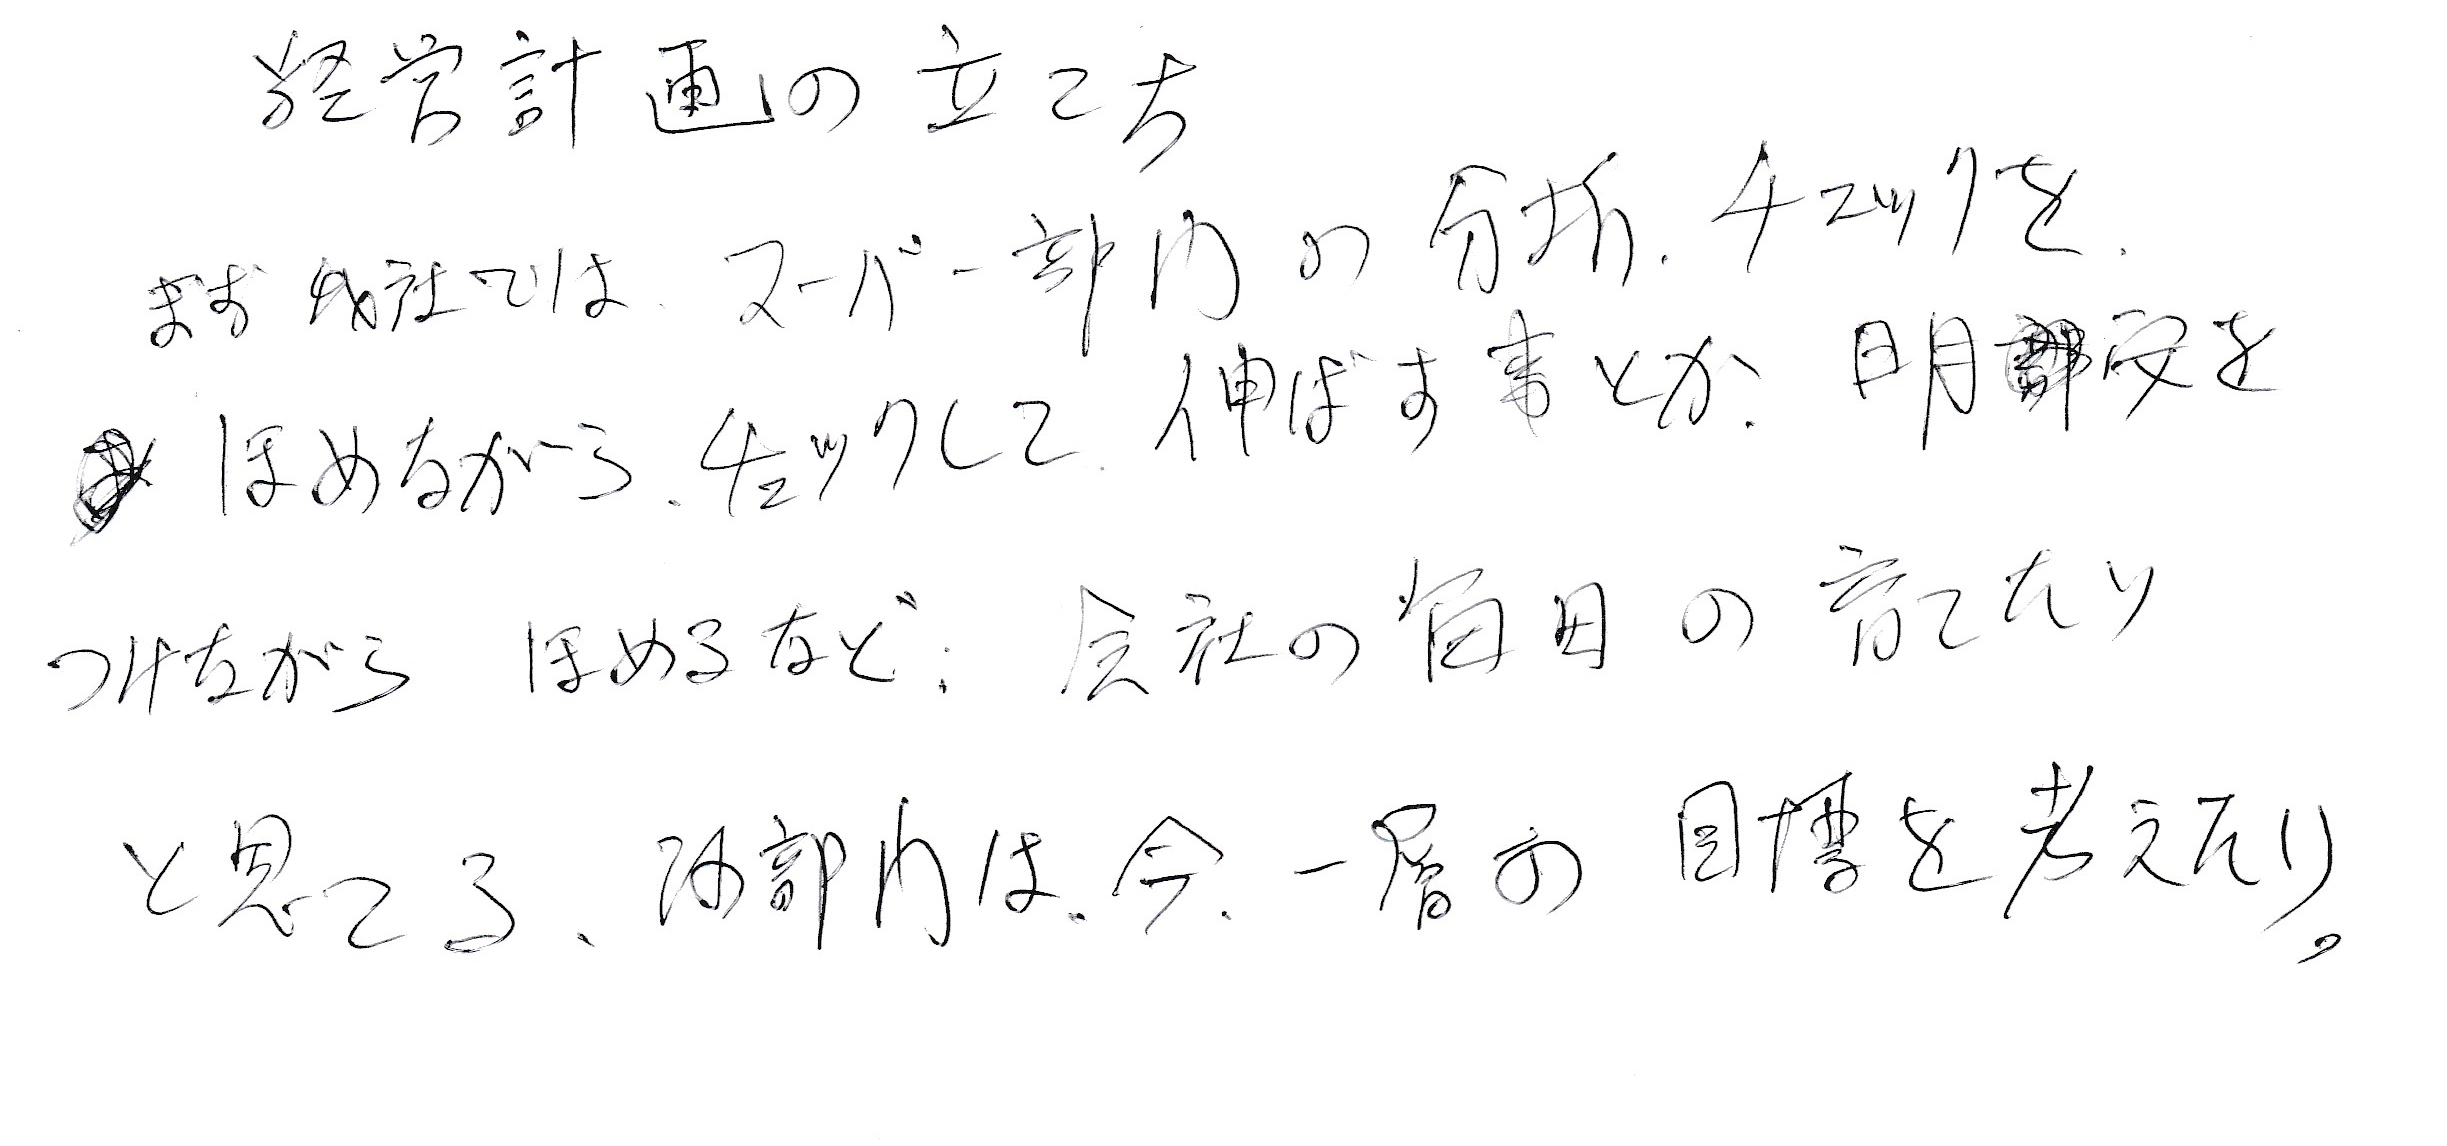 経営計画の立てち
まず 我社では、スーパー部内の分析、チェックを、
ほめながら、チェックして、伸ばす事とか、明安を
つけながら ほめるなど、会社の毎日の育てたり
と思てる、部内は、今、一層の 目標を考えたり。